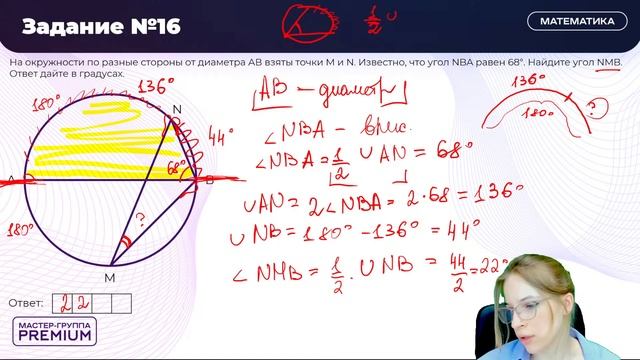 Задание №16
МАТЕМАТИКА
На окружности по разные стороны от диаметра AB взяты точки M и N. Известно, что угол NBA равен 68°. Найдите угол NMB.
Ответ дайте в градусах.
1/2 ∪
180°
136°
N
44°
68°
A
B
180°
?
M
AB – диаметр
∠NBA – впис.
∠NBA = 1/2 ∪AN = 68°
∪AN = 2∠NBA = 2·68 = 136°
∪NB = 180° – 136° = 44°
∠NMB = 1/2 · ∪NB = 44/2 = 22°
136°
180°
?
Ответ: 22
МАСТЕР-ГРУППА
PREMIUM